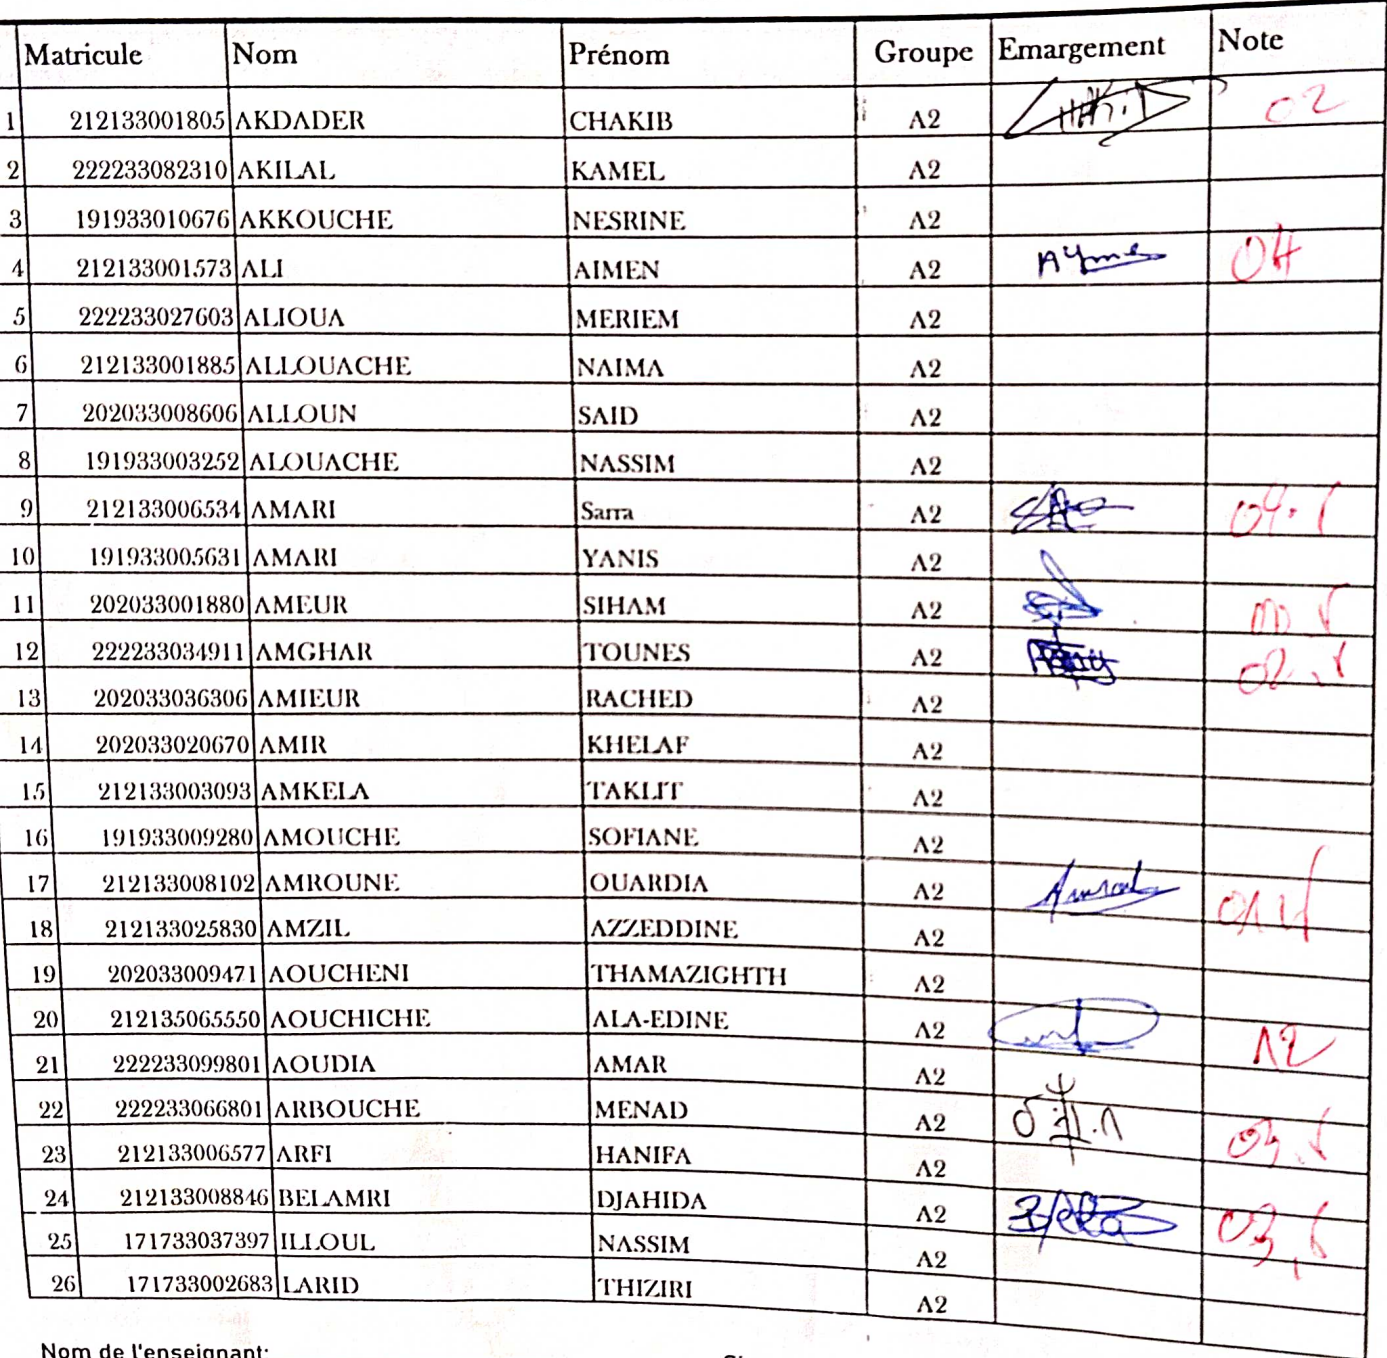 Matricule Nom Prénom Groupe Emargement Note
1 212133001805 AKDADER CHAKIB A2 02
2 222233082310 AKILAL KAMEL A2
3 191933010676 AKKOUCHE NESRINE A2
4 212133001573 ALI AIMEN A2 04
5 222233027603 ALIOUA MERIEM A2
6 212133001885 ALLOUACHE NAIMA A2
7 202033008606 ALLOUN SAID A2
8 191933003252 ALOUACHE NASSIM A2
9 212133006534 AMARI Sarra A2
10 191933005631 AMARI YANIS A2
11 202033001880 AMEUR SIHAM A2
12 222233034911 AMGHAR TOUNES A2
13 202033036306 AMIEUR RACHED A2
14 202033020670 AMIR KHELAF A2
15 212133003093 AMKELA TAKLIT A2
16 191933009280 AMOUCHE SOFIANE A2
17 212133008102 AMROUNE OUARDIA A2
18 212133025830 AMZIL AZZEDDINE A2
19 202033009471 AOUCHENI THAMAZIGHTH A2
20 212135065550 AOUCHICHE ALA-EDINE A2 12
21 222233099801 AOUDIA AMAR A2
22 222233066801 ARBOUCHE MENAD A2
23 212133006577 ARFI HANIFA A2
24 212133008846 BELAMRI DJAHIDA A2
25 171733037397 ILLOUL NASSIM A2
26 171733002683 LARID THIZIRI A2
Nom de l'enseignant: